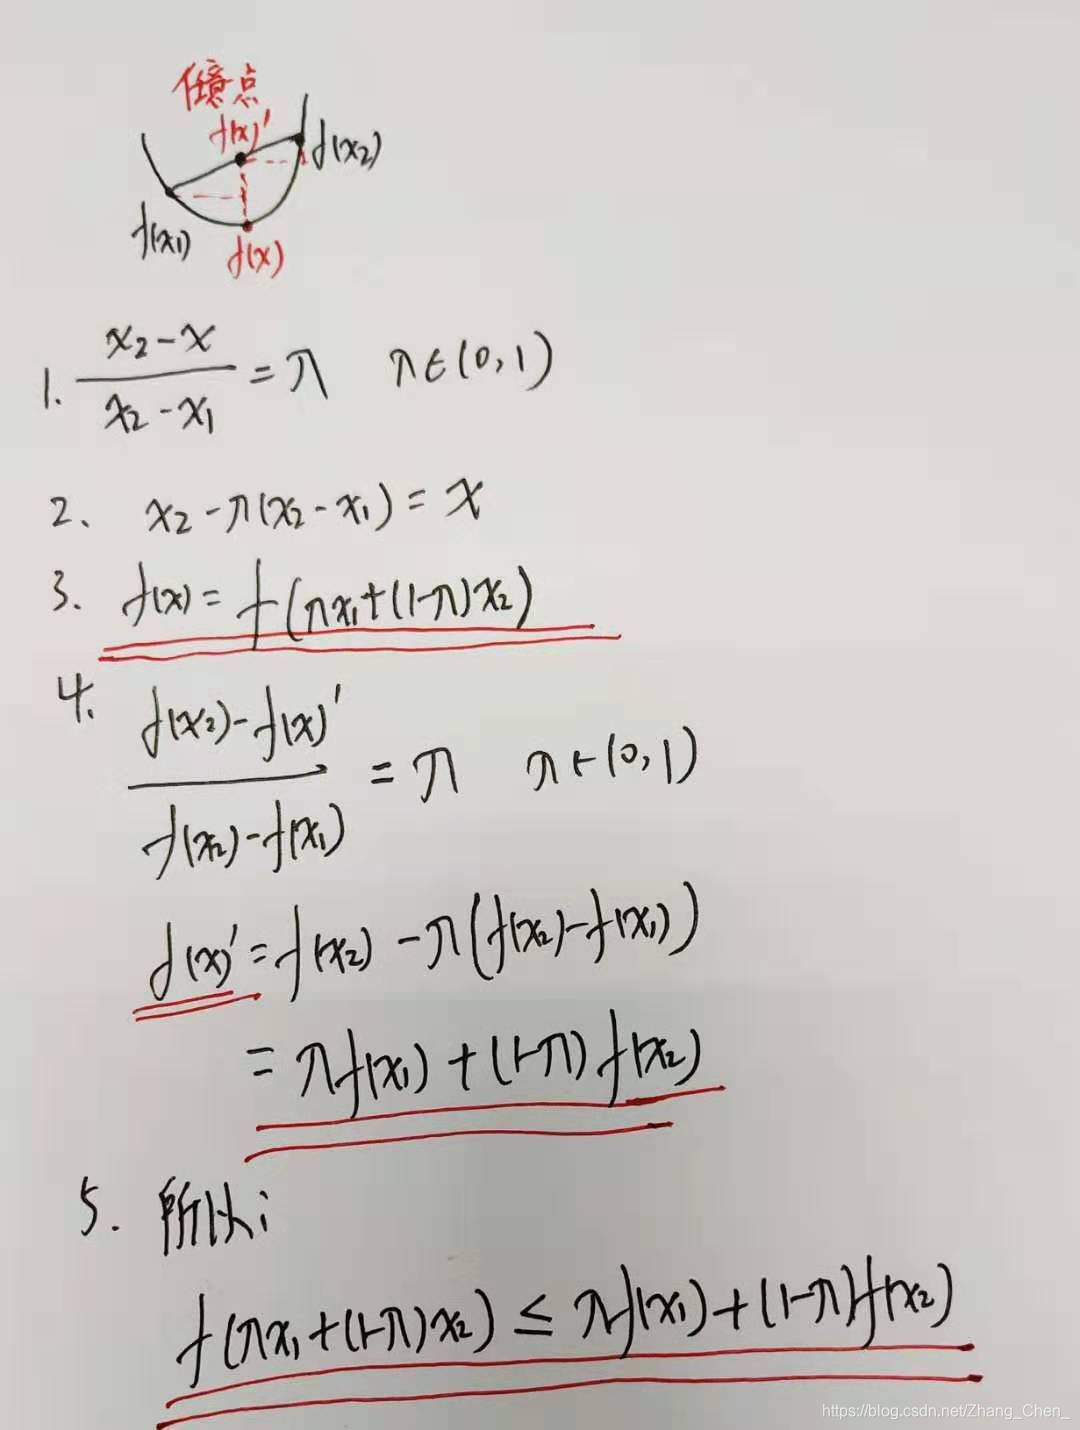 任意点
f(x)'
f(x2)
f(x1)
f(x)
1. (x2-x)/(x2-x1) = π π∈(0,1)
2、 x2-π(x2-x1)=x
3. f(x)=f(πx1+(1-π)x2)
4. (f(x2)-f(x)')/(f(x2)-f(x1)) = π π∈(0,1)
f(x)'=f(x2)-π(f(x2)-f(x1))
=πf(x1)+(1-π)f(x2)
5. 所以:
f(πx1+(1-π)x2)≤πf(x1)+(1-π)f(x2)
https://blog.csdn.net/Zhang_Chen_